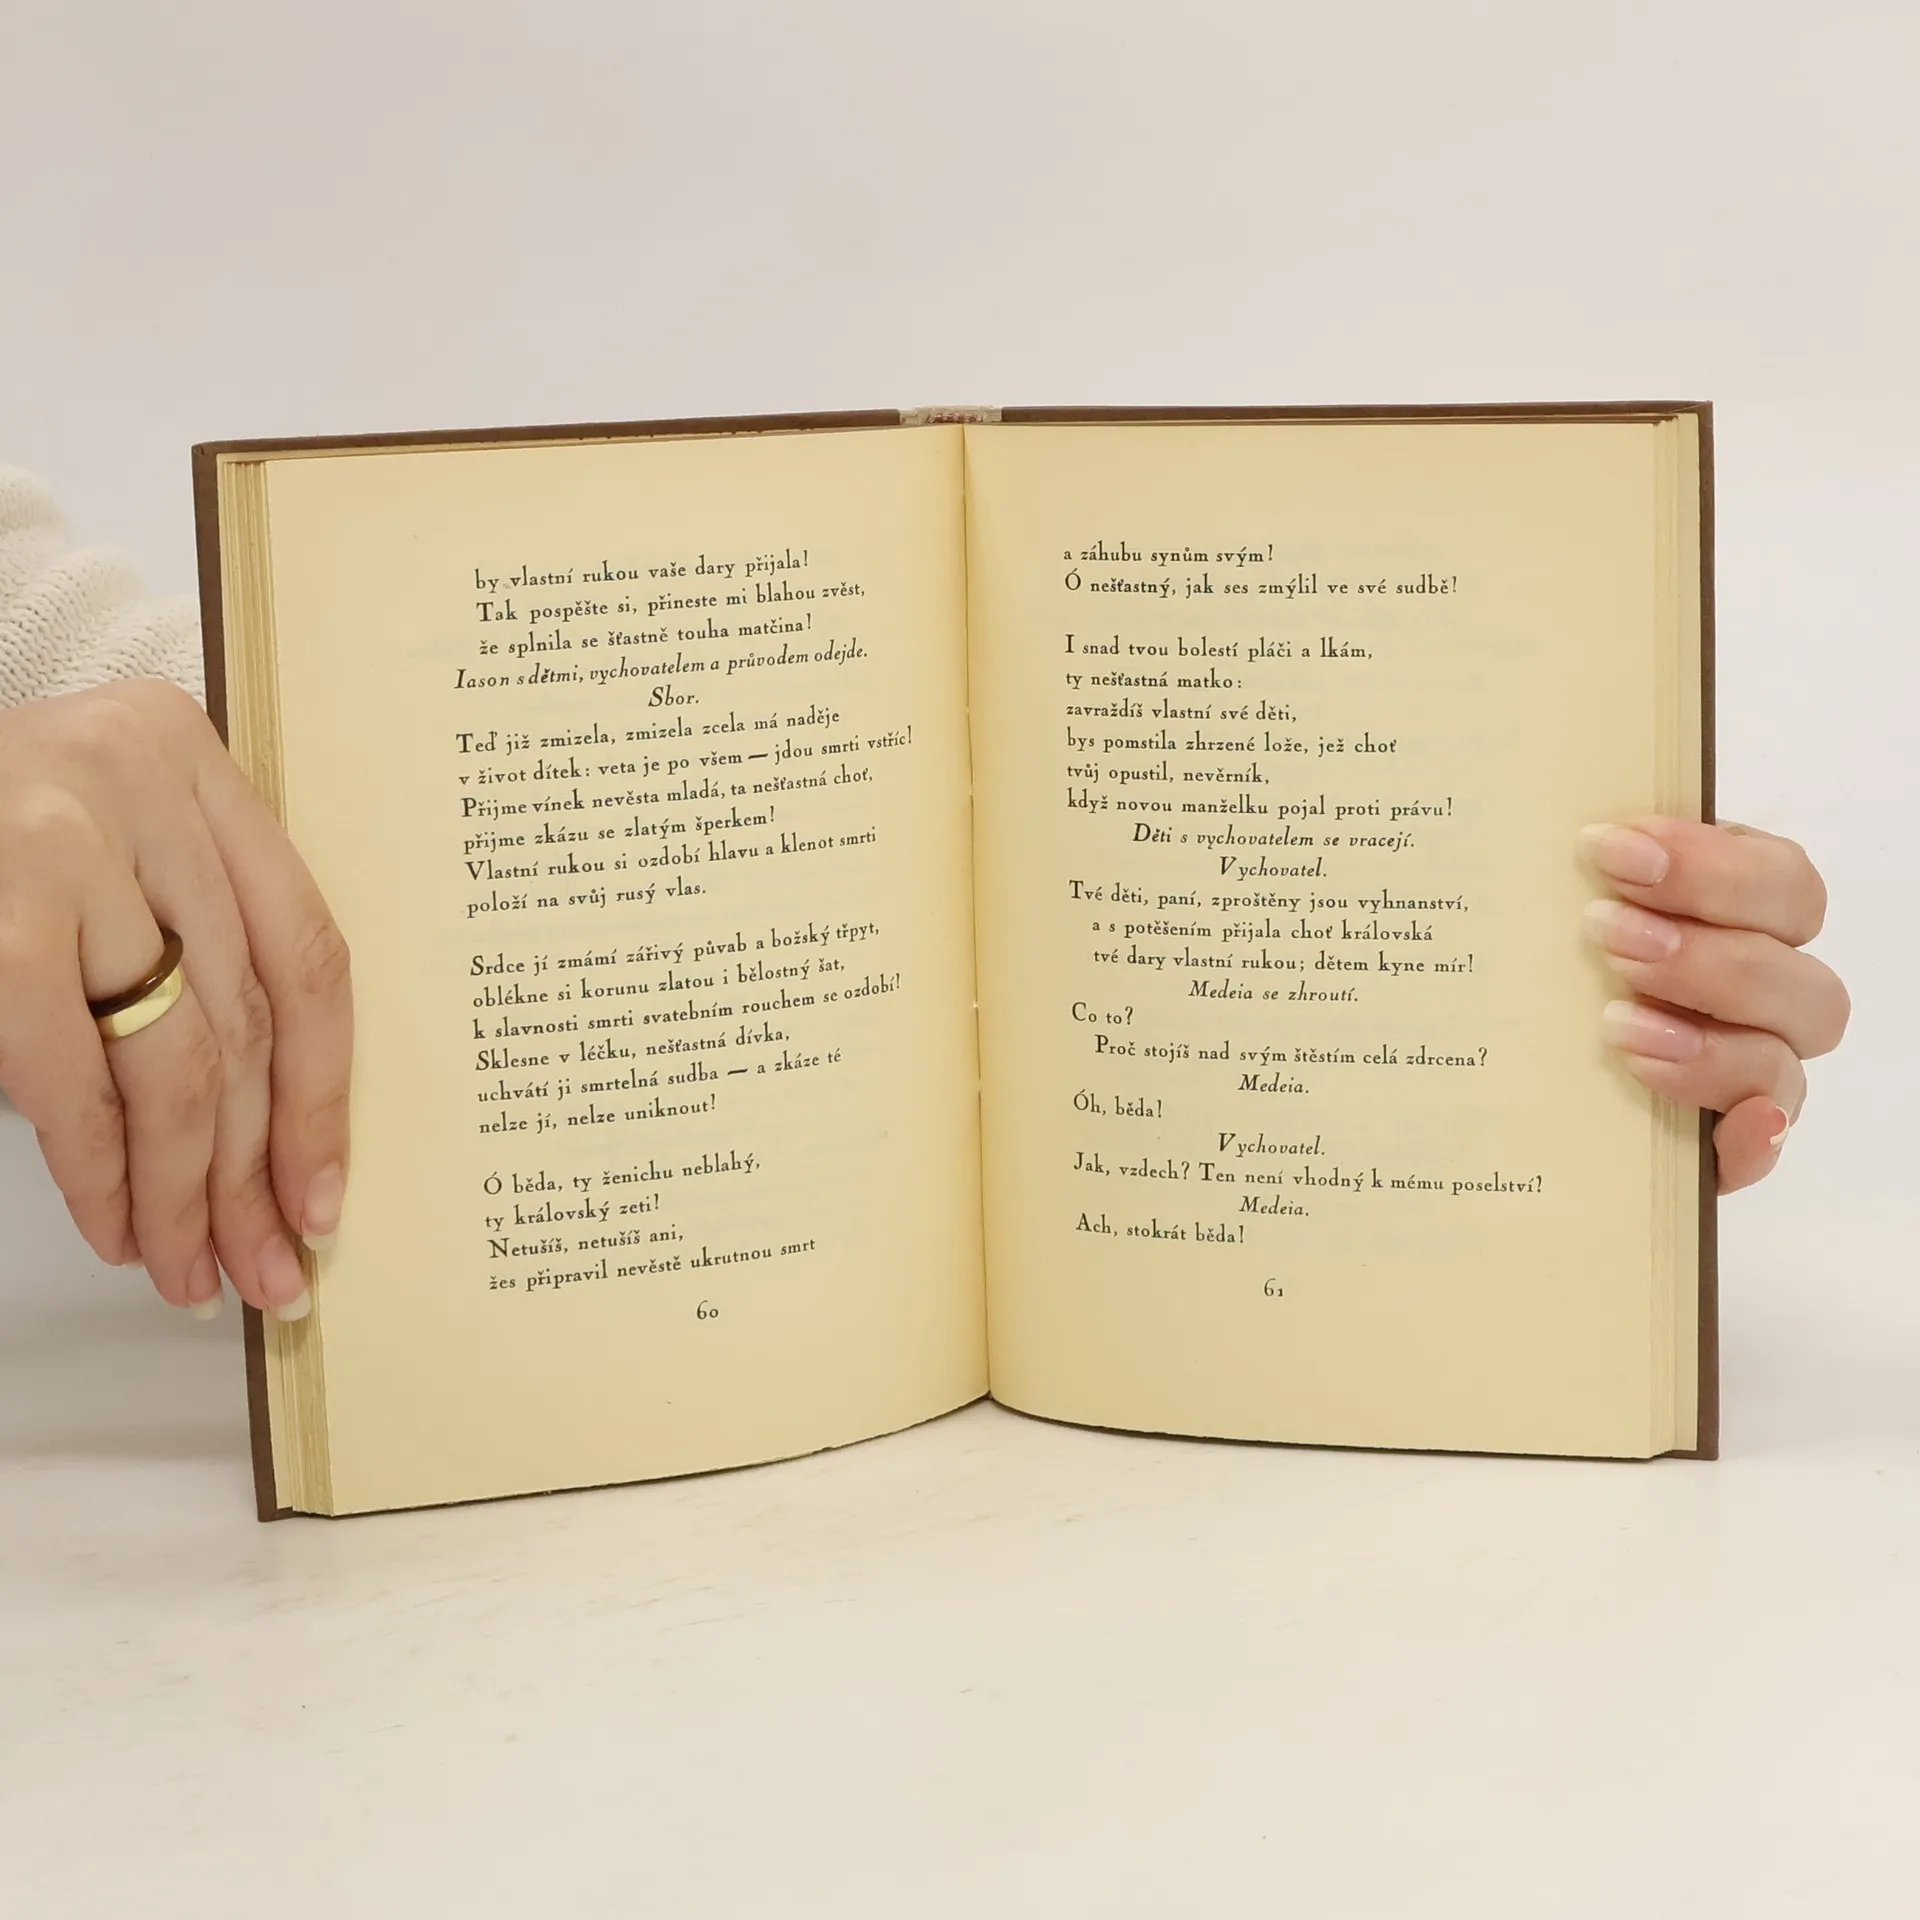 by vlastní rukou vaše dary přijala!
Tak pospěšte si, přineste mi blahou zvěst,
že splnila se šťastně touha matčina!
Iason s dětmi, vychovatelem a průvodem odejde.
Sbor.
Teď již zmizela, zmizela zcela má naděje
v život dítek: veta je po všem — jdou smrti vstříc!
Přijme vínek nevěsta mladá, ta nešťastná choť,
přijme zkázu se zlatým šperkem!
Vlastní rukou si ozdobí hlavu a klenot smrti
položí na svůj rusý vlas.
Srdce jí zmámí zářivý půvab a božský třpyt,
oblékne si korunu zlatou i bělostný šat,
k slavnosti smrti svatebním rouchem se ozdobí!
Sklesne v léčku, nešťastná dívka,
uchvátí ji smrtelná sudba — a zkáze té
nelze jí, nelze uniknout!
Ó běda, ty ženichu neblahý,
ty královský zeti!
Netušíš, netušíš ani,
žes připravil nevěstě ukrutnou smrt
60
a záhubu synům svým!
Ó nešťastný, jak ses zmýlil ve své sudbě!
I snad tvou bolestí pláči a lkám,
ty nešťastná matko:
zavraždíš vlastní své děti,
bys pomstila zhrzené lože, jež choť
tvůj opustil, nevěrník,
když novou manželku pojal proti právu!
Děti s vychovatelem se vracejí.
Vychovatel.
Tvé děti, paní, zproštěny jsou vyhnanství,
a s potěšením přijala choť královská
tvé dary vlastní rukou; dětem kyne mír!
Medeia se zhroutí.
Co to?
Proč stojíš nad svým štěstím celá zdrcena?
Medeia.
Óh, běda!
Vychovatel.
Jak, vzdech? Ten není vhodný k mému poselství?
Medeia.
Ach, stokrát běda!
61